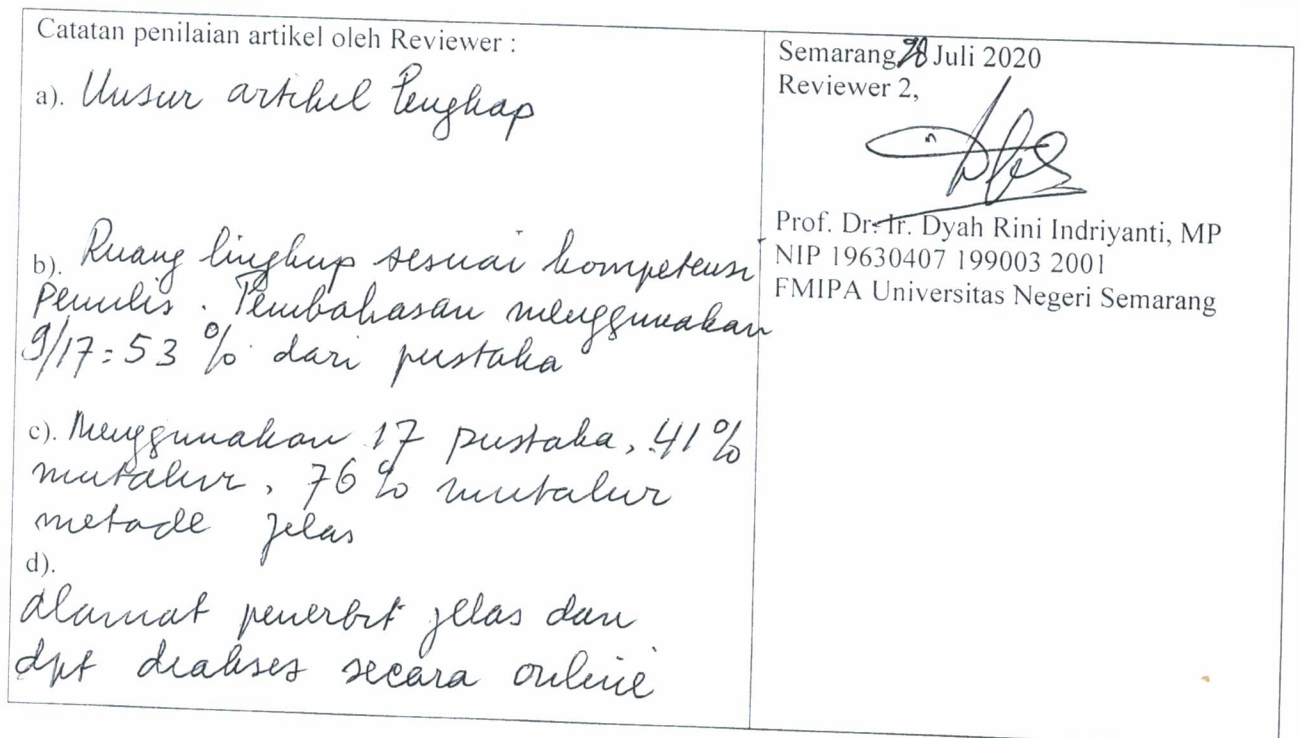 Catatan penilaian artikel oleh Reviewer :
a). Unsur artikel lengkap
b). Ruang lingkup sesuai kompetensi
Penulis. Pembahasan menggunakan
9/17 = 53 % dari pustaka
c). Menggunakan 17 pustaka, 41 %
mutahir, 76 % mutahir
metode jelas
d).
Alamat penerbit jelas dan
dpt diakses secara online
Semarang, 28 Juli 2020
Reviewer 2,
Prof. Dr. Ir. Dyah Rini Indriyanti, MP
NIP 19630407 199003 2001
FMIPA Universitas Negeri Semarang